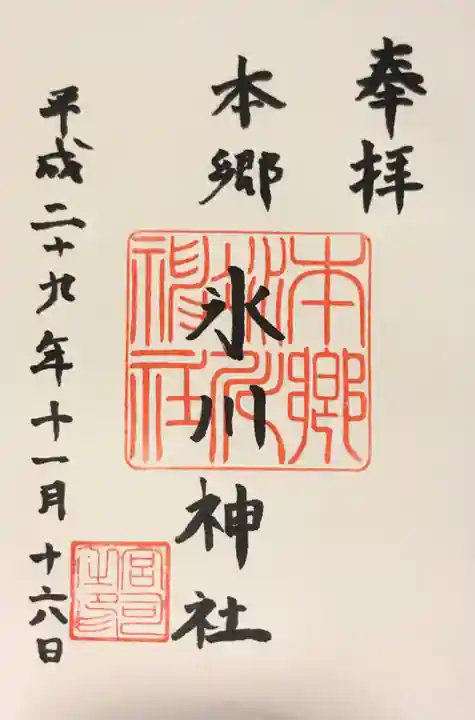 奉拝
本郷
氷川神社
本郷
氷川
神社
平成二十九年十一月十六日
宮司
之印